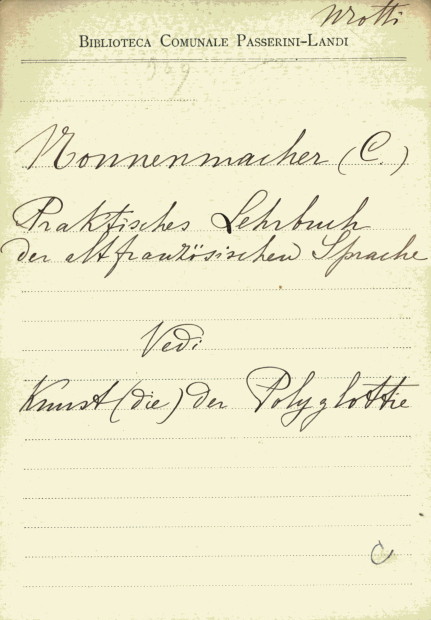 Wrotti
BIBLIOTECA COMUNALE PASSERINI-LANDI
Nonnenmacher (C.)
Praktisches Lehrbuch
der altfranzösischen Sprache
Vedi
Kunst (die) der Polyglottie
C